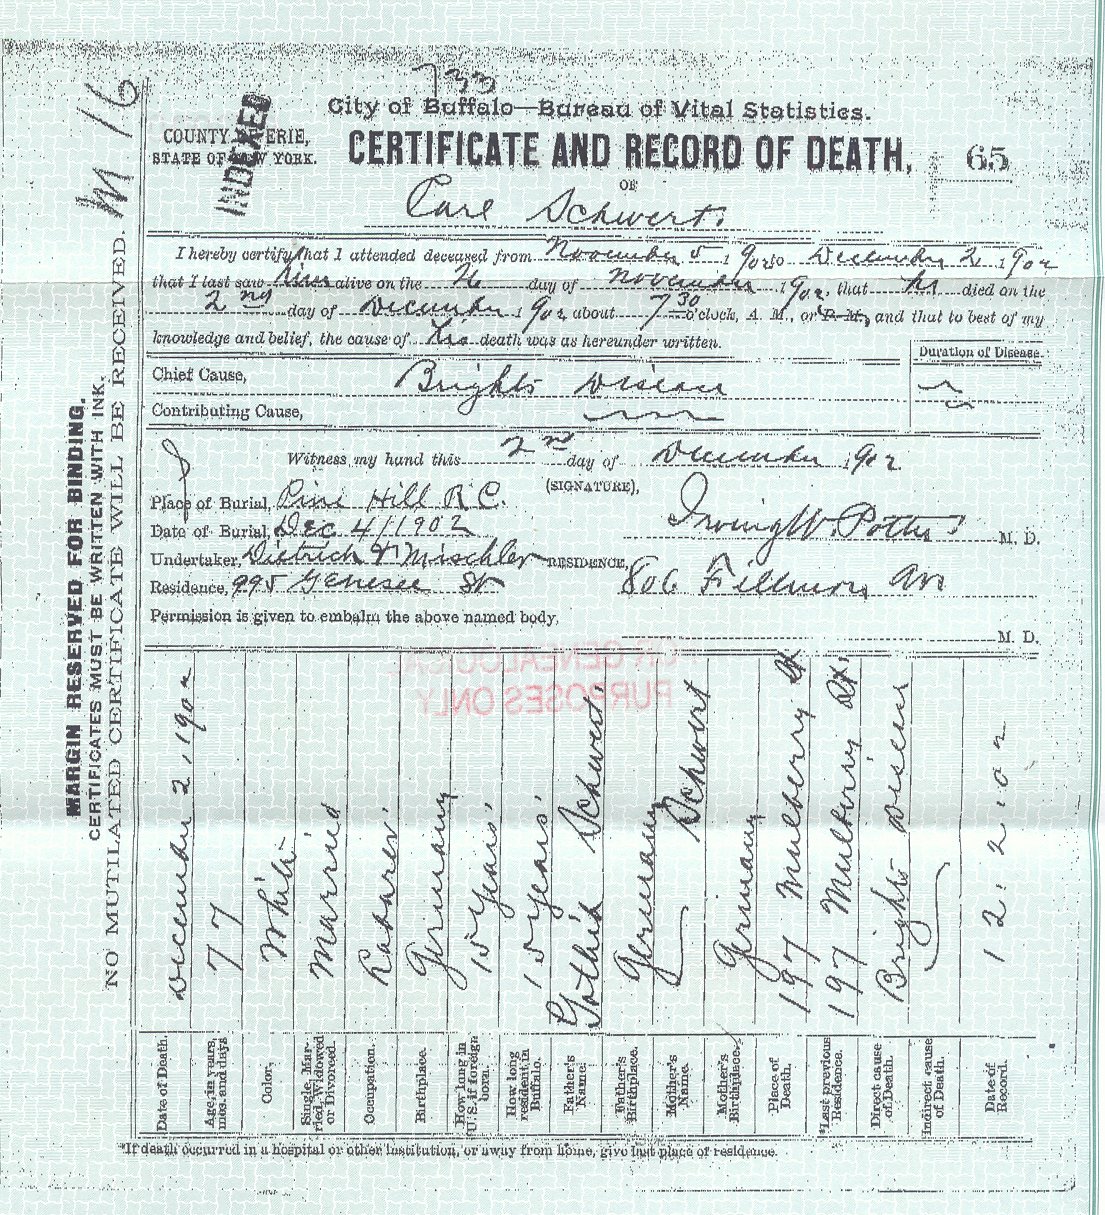 733
City of Buffalo—Bureau of Vital Statistics.
COUNTY OF ERIE,
STATE OF NEW YORK.
INDEXED
CERTIFICATE AND RECORD OF DEATH,
65
OF
Carl Schwert
I hereby certify that I attended deceased from November 5 1902 to December 2 1902
that I last saw him alive on the 26 day of November 1902, that he died on the
2nd day of December 1902 about 7 30 o'clock, A. M., or P. M., and that to best of my
knowledge and belief, the cause of his death was as hereunder written.
Duration of Disease.
Chief Cause, Brights Disease
Contributing Cause,
Witness my hand this 2nd day of December 1902
(SIGNATURE),
Place of Burial, Pine Hill R C.
Date of Burial, Dec 4/1902
Irving W. Potter M. D.
Undertaker, Dietrich & Mischler
RESIDENCE, 806 Fillmore Ave
Residence, 995 Genesee St
Permission is given to embalm the above named body,
M. D.
FOR GENEALOGICAL
PURPOSES ONLY
Date of Death. December 2, 1902
Age in years, mos. and days 77
Color, White
Single, Married, Widowed or Divorced. Married
Occupation. Laborer
Birthplace. Germany
How long in U.S. if foreign born. 15 years
How long resident in Buffalo. 15 years
Father's Name. Schwert
Father's Birthplace. Germany
Mother's Name. Schwert
Mother's Birthplace. Germany
Place of Death. 197 Mulberry St
*Last previous Residence. 197 Mulberry St
Direct cause of Death. Brights Disease
Indirect cause of Death.
Date of Record. 12.2.02
*If death occurred in a hospital or other institution, or away from home, give last place of residence.
MARGIN RESERVED FOR BINDING.
CERTIFICATES MUST BE WRITTEN WITH INK.
NO MUTILATED CERTIFICATE WILL BE RECEIVED.
M 16